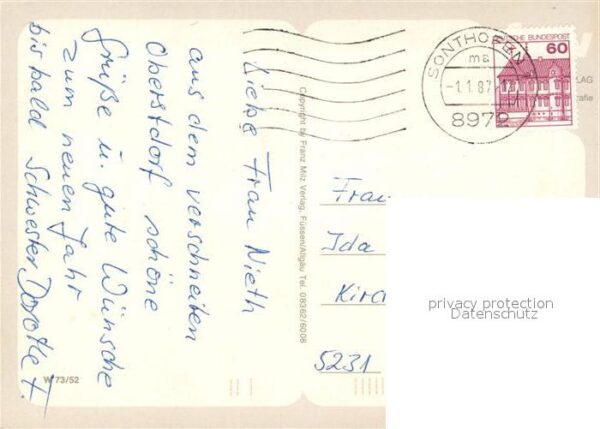 Liebe Frau Nieth
aus dem verschneiten
Oberstdorf schöne
Grüße u. gute Wünsche
zum neuen Jahr
bis bald Schwester Dorothe F.
W 73/52
Copyright by Franz Milz Verlag, Füssen/Allgäu Tel. 08362/6008
SONTHOFEN
ma
-1.1.87
8972
DEUTSCHE BUNDESPOST
60
Frau
Ida
Kirc
5231
privacy protection
Datenschutz